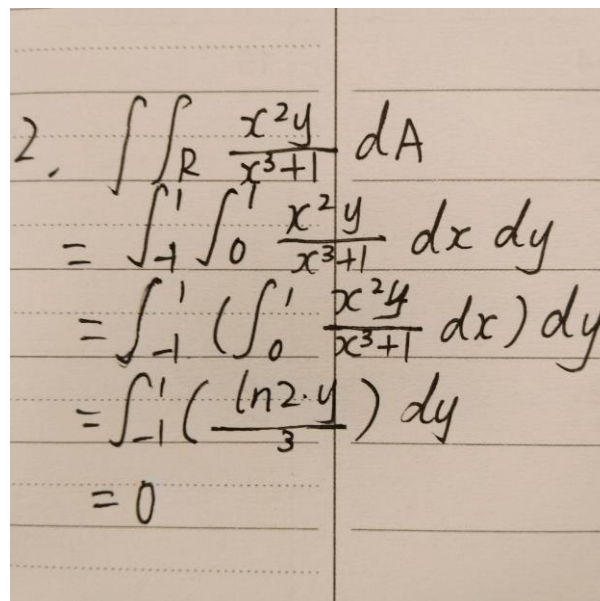 2. ∫∫_R x²y/(x³+1) dA
= ∫_{-1}^{1} ∫_0^1 x²y/(x³+1) dx dy
= ∫_{-1}^{1} (∫_0^1 x²y/(x³+1) dx) dy
= ∫_{-1}^{1} (ln2·y/3) dy
= 0